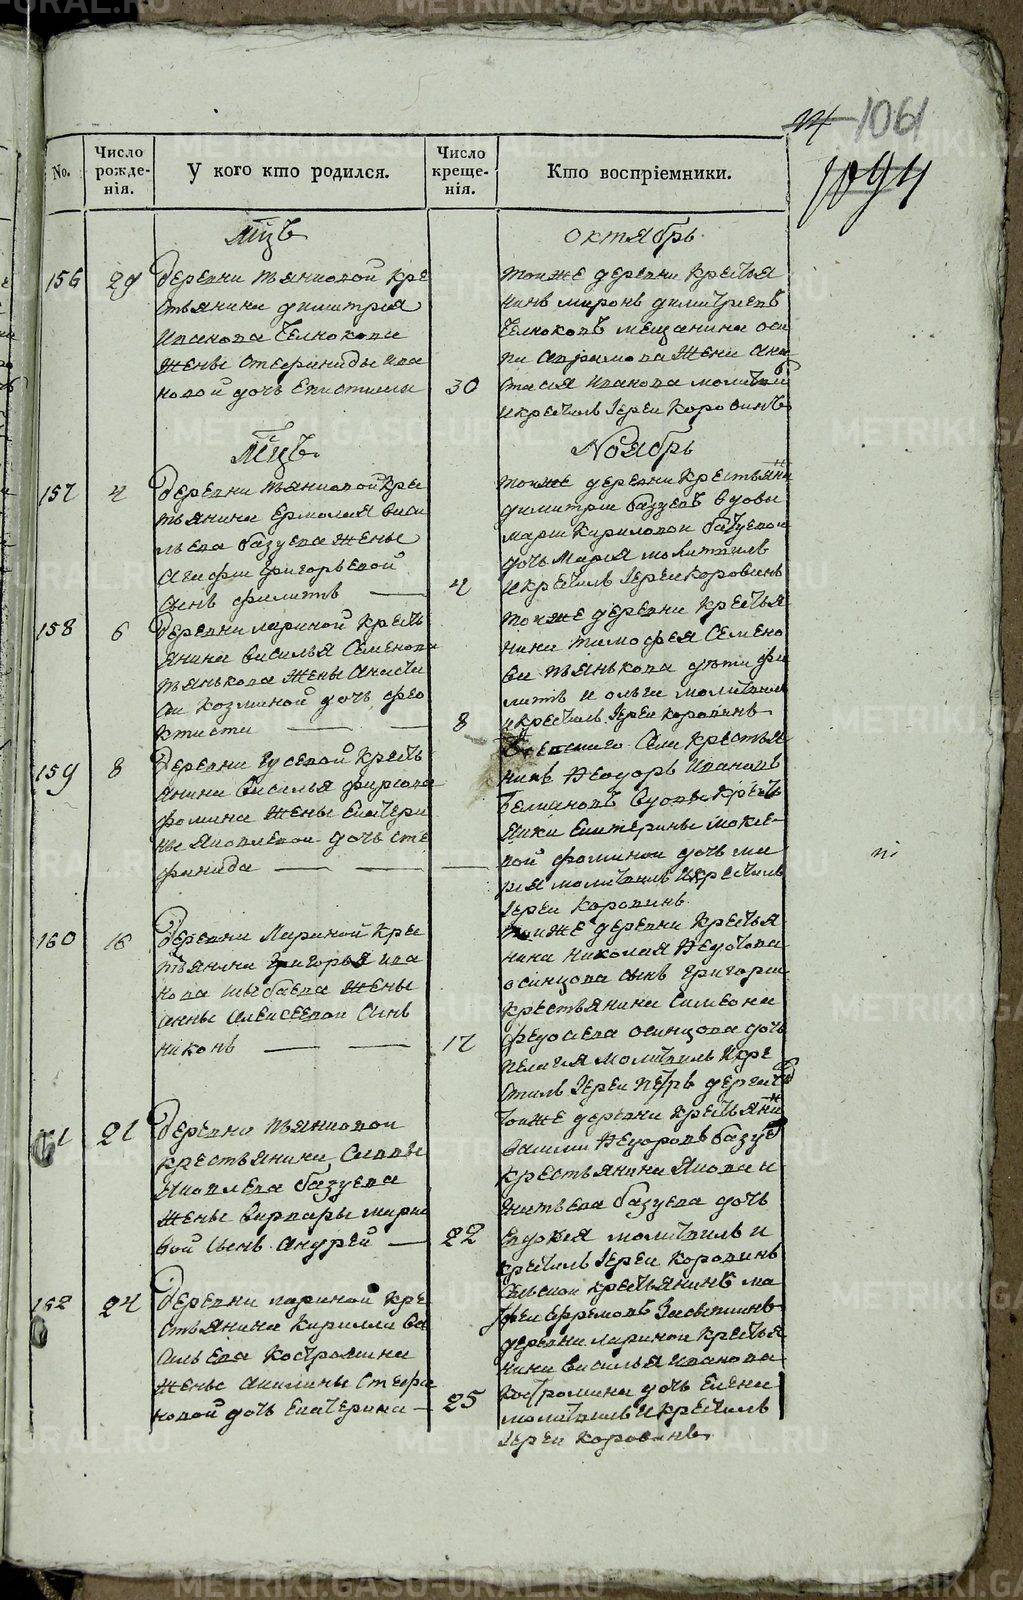 1061
1094
No.
Число рожденія.
У кого кто родился.
Число крещенія.
Кто воспріемники.
Мцъ
Октябрь
156
29
Деревни Пьянковой кре
стьянина Димитрия
Иванова Челнокова
жены Стефаниды Ива
новой дочь Епистимы
30
тойже деревни крестья
нинъ Миронъ Димитриевъ
Челноковъ мещанина Оси
па Аврамова жена Ана
стасия Иванова молитвилъ
и крестилъ Іерей Коровинъ
Мцъ
Ноябрь
157
4
Деревни Пьянковой кре
тьянина Ермолая Васи
льева Базуева жены
Агафьи Григорьевой
сынъ Филипъ
4
тойже деревни крестьяни
Димитри Базуевъ вдовы
Марьи Кириловой Базуевой
дочь Мария молитвилъ
и крестилъ Іерей Коровинъ
158
6
Деревни Лариной кресть
янина Василья Семенова
Пьянкова жены Анастаси
и Козминой дочь Фео
ктиста
8
тойже деревни крестья
нина Тимофея Семено
ва Пьянькова дети Фи
липъ и Ольга молитвилъ
и крестилъ Іерей Коровинъ
159
8
Деревни Гусевой кресть
янина Василья Фирсова
Фомина жены Екатери
ны Яковлевой дочь Сте
фанида
села крестья
нинъ Феодоръ Ивановъ
вдовы кресть
янки Екатерины Мокее
вой Фоминой дочь Ма
рия молитвилъ и крестилъ
Іерей Коровинъ
160
16
Деревни Лариной кре
тьянина Григорья Ива
нова жены
Анны Алексеевой сынъ
Никонъ
17
тойже деревни крестья
нина Николая Федотова
Осинцова сынъ Григори
крестьянина Симеона
Федосеева Осинцова дочь
Пелагия молитвилъ и кре
стилъ Іерей Петръ
161
21
Деревни Пьянковой
крестьянина Саввы
Яковлева Базуева
жены Варвары Марко
вой сынъ Андрей
22
тойже деревни крестьяни
Василий Феодоровъ Базуе
крестьянина Якова Иг
натьева Базуева дочь
Евдокия молитвилъ и
крестилъ Іерей Коровинъ
162
24
Деревни Лариной кре
стьянина Кирилла Ва
сильева Костромина
жены Акилины Стефа
новой дочь Екатерина
25
сельской крестьянинъ Ма
фей Ефремовъ
деревни Лариной крестья
нина Василья Иванова
Костромина дочь Елена
молитвилъ и крестилъ
Іерей Коровинъ
METRIKI.GASO-URAL.RU